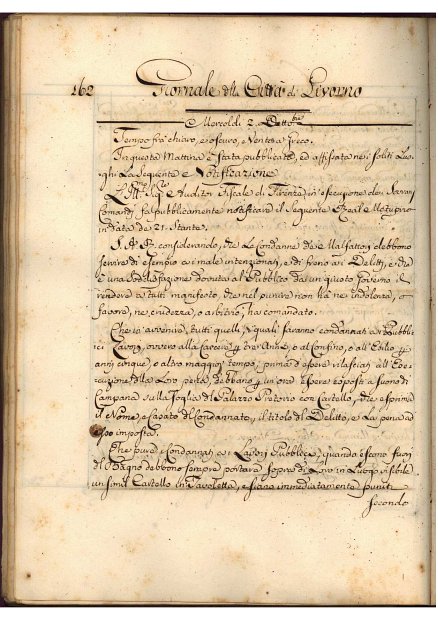 162 Giornale della Città di Livorno
Mercoldì 2. Dettobre
Tempo frà chiaro, e oscuro, e Vento a Greco.
In questa Mattina è stata pubblicata, ed affissata nei soliti Luo,
ghi La Seguente e Notificazione
L' Ill. Sigre Auditor Fiscale di Firenze in esecuzione dei Sovrani
Comandi fà pubblicamente notificare il Seguente Real e Motuprop
in data de 21. Stante.
S. A. R. considerando, che Le Condanne de i Malfattori debbono
servire di esempio ai male intenzionati, e di freno ai Delitti, e che
è una soddisfazione dovuta al Pubblico da un giusto Governo il
rendere a tutti manifesto, che nel punire non ha ne indolenza, o
favore, ne crudezza, o arbitrio; ha comandato.
Che in avvenire, tutti quelli, i quali saranno condannati ai Pubbli,
ci Lavori, ovvero alla Carcere p tre Anni, o al Confino, o all' Esilio p
anni cinque, o altro maggior tempo, prima d' essere rilasciati all' Ese,
cuzione della Loro pena, debbano p un' ora essere esposti a suono di
Campana sulla soglia del Palazzo Pretorio con Cartello, che esprima
il Nome, e Casato del Condannato, il titolo del Delitto, e La pena ad
esso imposta.
Che pure i Condannati ai Lavori Pubblici, quando escono fuori
del Bagno debbono sempre portare sopra di Loro in Luogo visibile
un simil Cartello in Tavoletta, e siano immediatamente puniti
secondo